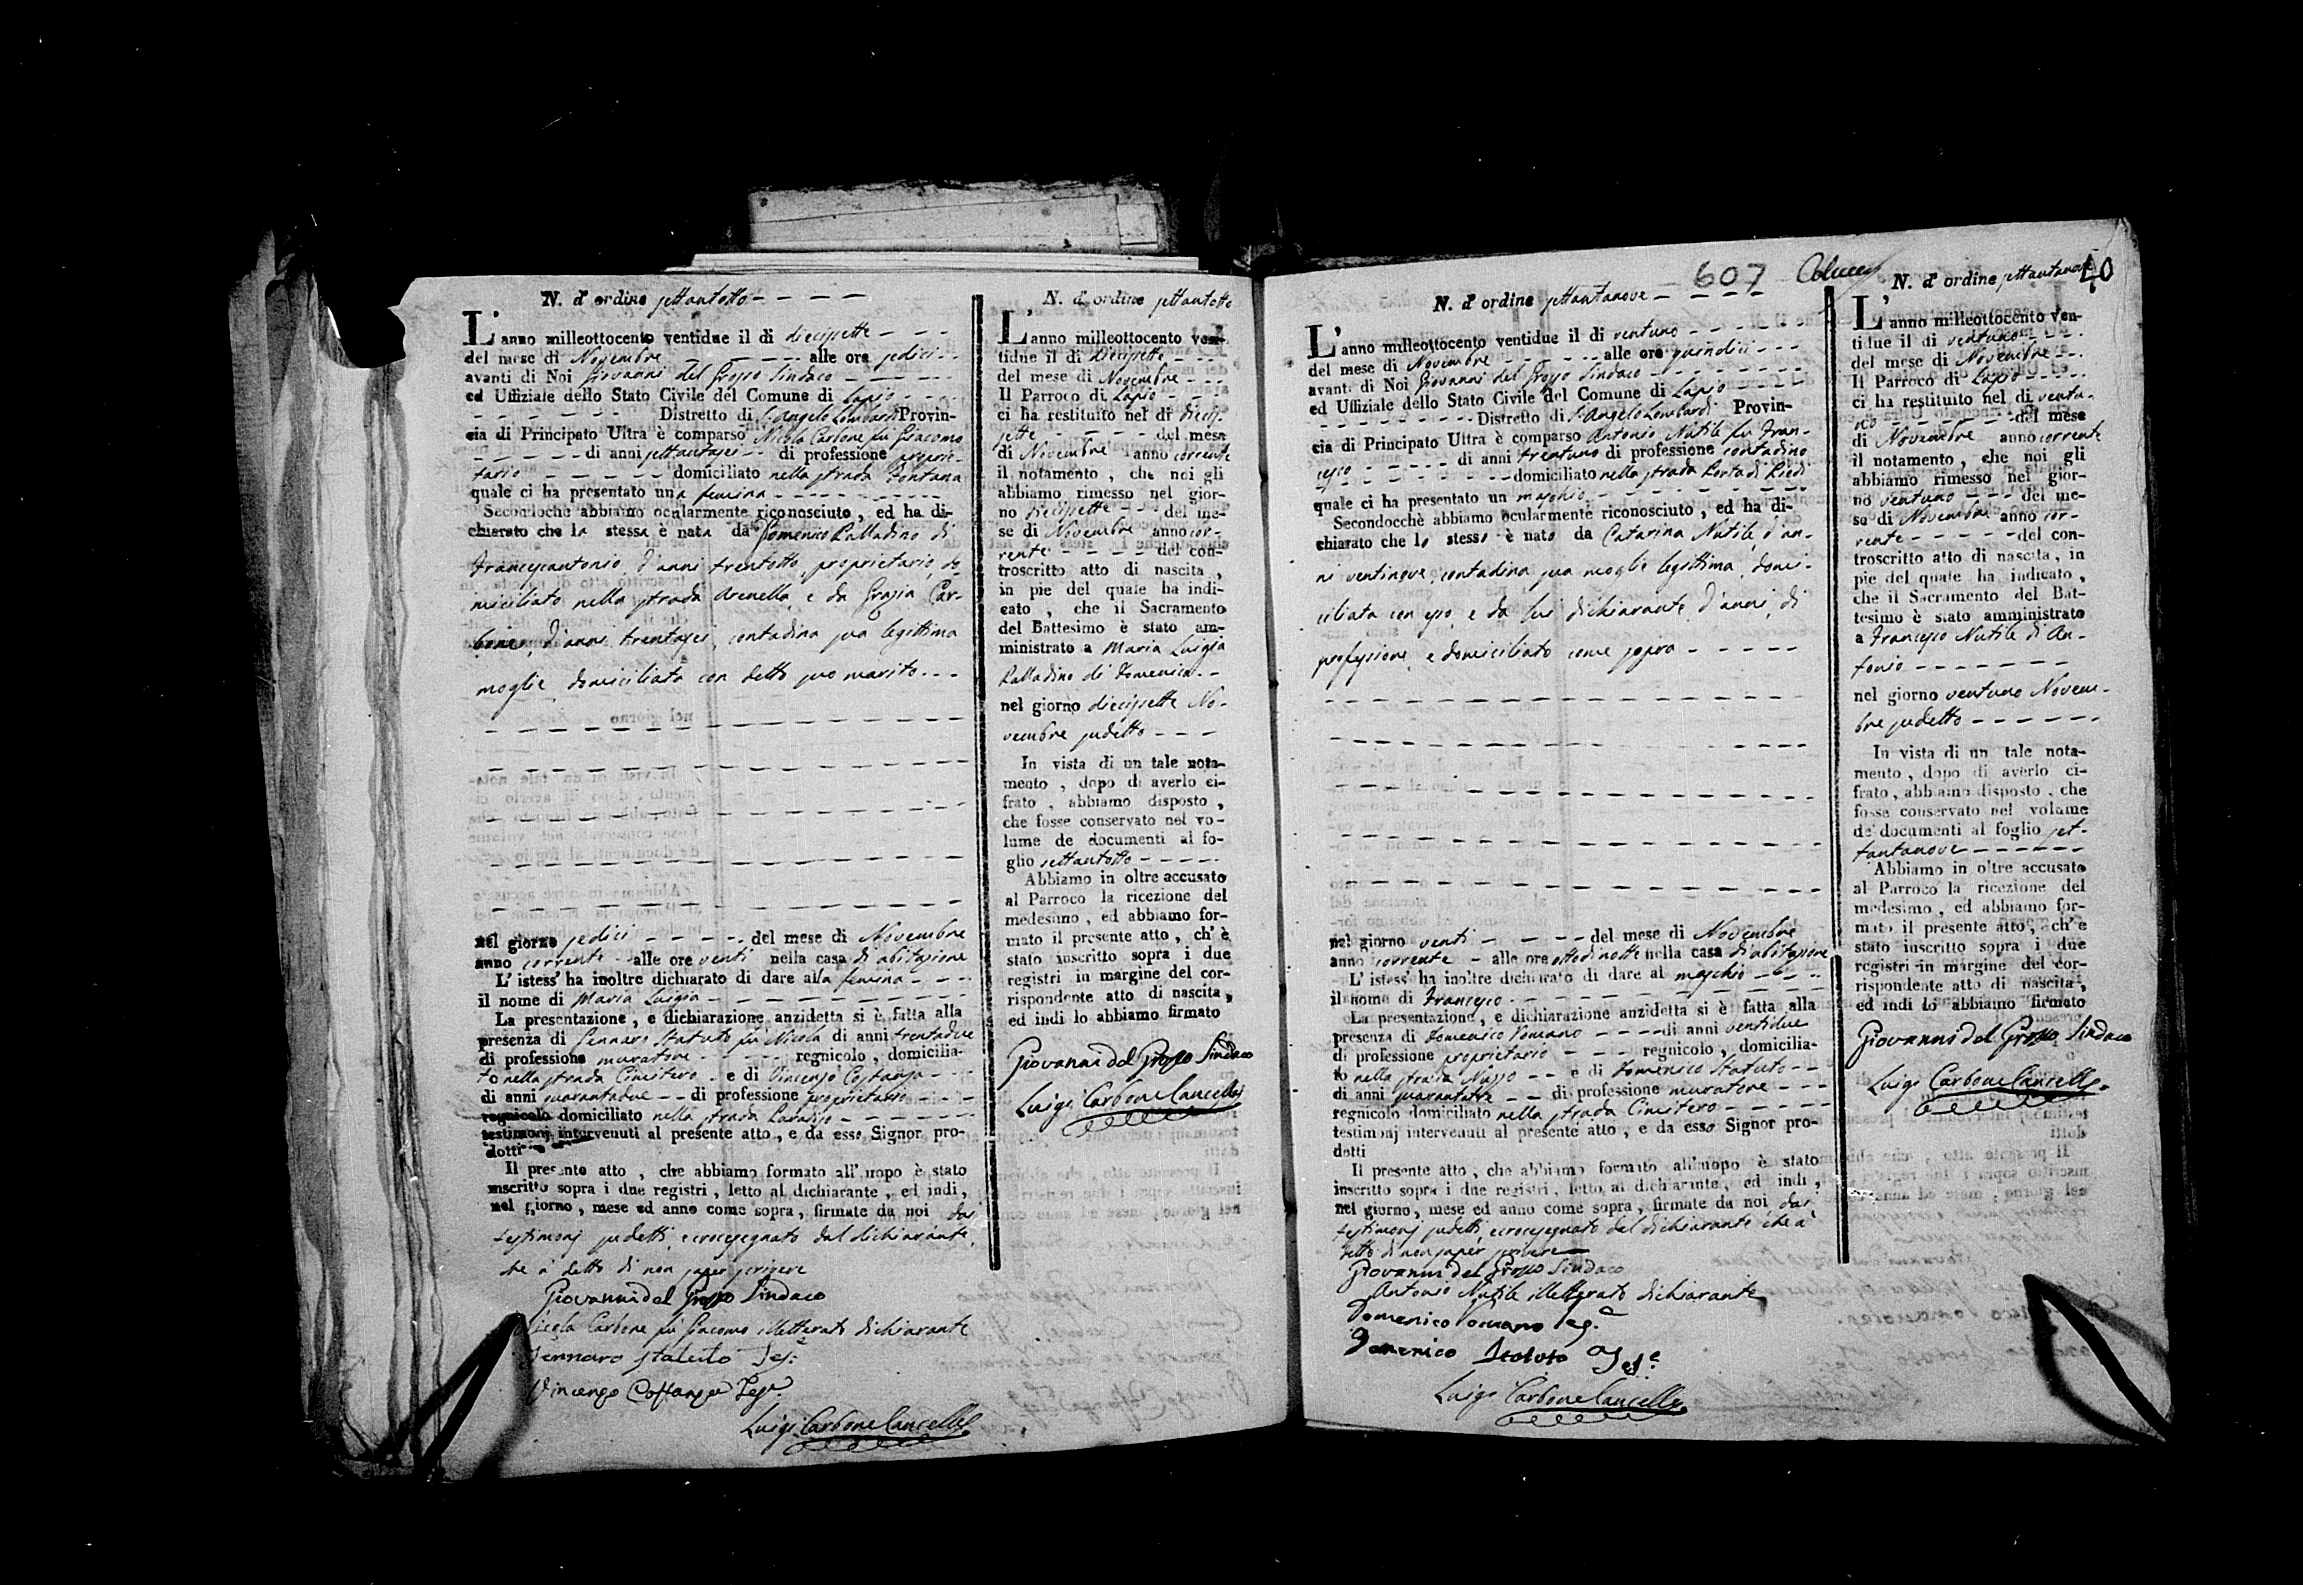 N. d' ordine settantotto
L' anno milleottocento ventidue il di diecisette
del mese di Novembre alle ore sedici
avanti di Noi Giovanni del Grosso Sindaco
ed Uffiziale dello Stato Civile del Comune di Lapio
Distretto di S. Angelo Lombardi Provin-
cia di Principato Ultra è comparso Nicola Carbone fù Giacomo
di anni settantasei di professione proprie-
tario domiciliato nella strada Fontana
quale ci ha presentato una femina
Secondochè abbiamo ocularmente riconosciuto, ed ha di-
chiarato che la stessa è nata da Domenico Palladino di
Francescantonio, d'anni trentotto, proprietario, do-
miciliato nella strada Arenella, e da Grazia Car-
bone, d'anni trentasei, contadina sua legittima
moglie, domiciliata con detto suo marito
nel giorno sedici del mese di Novembre
anno corrente alle ore venti nella casa di abitazione
L' istess' ha inoltre dichiarato di dare alla femina
il nome di Maria Luigia
La presentazione, e dichiarazione anzidetta si è fatta alla
presenza di Gennaro Statuto fù Nicola di anni trentadue
di professione muratore regnicolo, domicilia-
to nella strada Cimitero e di Vincenzo Costanza
di anni quarantadue di professione proprietario
regnicolo domiciliato nella strada
testimonj intervenuti al presente atto, e da esso Signor pro-
dotti
Il presente atto, che abbiamo formato all' uopo è stato
inscritto sopra i due registri, letto al dichiarante, ed indi,
nel giorno, mese ed anno come sopra, firmate da noi dai
testimonj sudetti, e crocesegnato dal dichiarante,
che à detto di non saper scrivere
Giovanni del Grosso Sindaco
Nicola Carbone fù Giacomo illetterato dichiarante
Gennaro Statuto Tes.e
Vincenzo Costanza Tes.e
Luigi Carbone Cancelle
N. d' ordine settantotto
L' anno milleottocento ven-
tidue il di diecisette
del mese di Novembre
Il Parroco di Lapio
ci ha restituito nel di dieci-
sette del mese
di Novembre anno corrente
il notamento, che noi gli
abbiamo rimesso nel gior-
no diecisette del me-
se di Novembre anno cor-
rente del con-
troscritto atto di nascita,
in pie del quale ha indi-
cato, che il Sacramento
del Battesimo è stato am-
ministrato a Maria Luigia
Palladino di Domenico
nel giorno diecisette No-
vembre sudetto
In vista di un tale nota-
mento, dopo di averlo ci-
frato, abbiamo disposto,
che fosse conservato nel vo-
lume de documenti al fo-
glio settantotto
Abbiamo in oltre accusato
al Parroco la ricezione del
medesimo, ed abbiamo for-
mato il presente atto, ch' è
stato inscritto sopra i due
registri in margine del cor-
rispondente atto di nascita,
ed indi lo abbiamo firmato
Giovanni del Grosso Sindaco
Luigi Carbone Cancelle
607
40
N. d' ordine settantanove
L' anno milleottocento ventidue il di ventuno
del mese di Novembre alle ore quindici
avanti di Noi Giovanni del Grosso Sindaco
ed Uffiziale dello Stato Civile del Comune di Lapio
Distretto di S. Angelo Lombardi Provin-
cia di Principato Ultra è comparso Antonio Nutile fù Fran-
cesco di anni trentuno di professione contadino
domiciliato nella strada Porta di Piedi
quale ci ha presentato un maschio
Secondocchè abbiamo ocularmente riconosciuto, ed ha di-
chiarato che lo stesso è nato da Catarina Nutile, d'an-
ni ventinove, contadina sua moglie legittima, domi-
ciliata con esso, e da lui dichiarante, d'anni, di
professione, e domiciliato come sopra
nel giorno venti del mese di Novembre
anno corrente alle ore otto di notte nella casa di abitazione
L' istess' ha inoltre dichiarato di dare al maschio
il nome di Francesco
La presentazione, e dichiarazione anzidetta si è fatta alla
presenza di Domenico Romano di anni ventidue
di professione proprietario regnicolo, domicilia-
to nella strada e di Domenico Statuto
di anni di professione muratore
regnicolo domiciliato nella strada Cimitero
testimonj intervenuti al presente atto, e da esso Signor pro-
dotti
Il presente atto, che abbiamo formato all' uopo è stato
inscritto sopra i due registri, letto al dichiarante, ed indi,
nel giorno, mese ed anno come sopra, firmate da noi, dai
testimonj sudetti, e crocesegnato dal dichiarante, che à
detto di non saper scrivere
Giovanni del Grosso Sindaco
Antonio Nutile illetterato dichiarante
Domenico Romano Tes.e
Domenico Statuto Tes.e
Luigi Carbone Cancelle
N. d' ordine settantanove
L' anno milleottocento ven-
tidue il di ventuno
del mese di Novembre
Il Parroco di Lapio
ci ha restituito nel di ventu-
no del mese
di Novembre anno corrente
il notamento, che noi gli
abbiamo rimesso nel gior-
no ventuno del me-
se di Novembre anno cor-
rente del con-
troscritto atto di nascita, in
pie del quale ha indicato,
che il Sacramento del Bat-
tesimo è stato amministrato
a Francesco Nutile di An-
tonio
nel giorno ventuno Novem-
bre sudetto
In vista di un tale nota-
mento, dopo di averlo ci-
frato, abbiamo disposto, che
fosse conservato nel volume
de' documenti al foglio set-
tantanove
Abbiamo in oltre accusato
al Parroco la ricezione del
medesimo, ed abbiamo for-
mato il presente atto, ch' è
stato inscritto sopra i due
registri in margine del cor-
rispondente atto di nascita,
ed indi lo abbiamo firmato
Giovanni del Grosso Sindaco
Luigi Carbone Cancelle